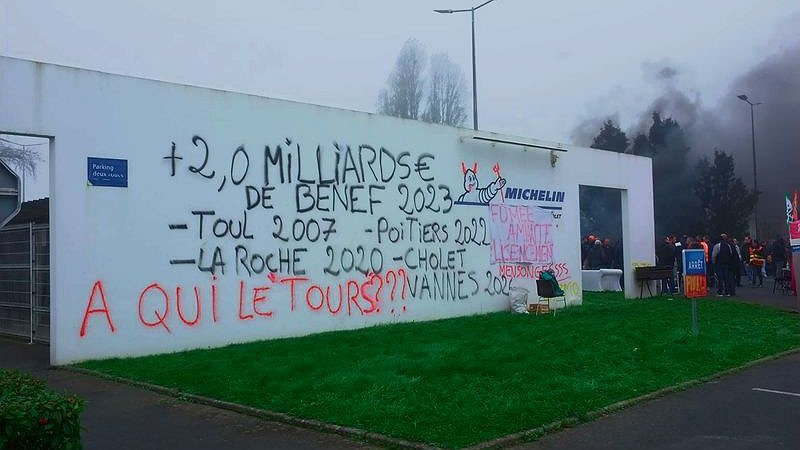 Parking
deux roues
+2,0 MiLLiARDS€
DE BENEF 2023
-TOUL 2007 -POiTIERS 2022
-LA ROCHE 2020 -CHOLET
VANNES
A QUi LE TOURS???
MICHELIN
FUMÉE
AMIANTE
LICENCIEMENT
MENSONGESSS
ARRÊT